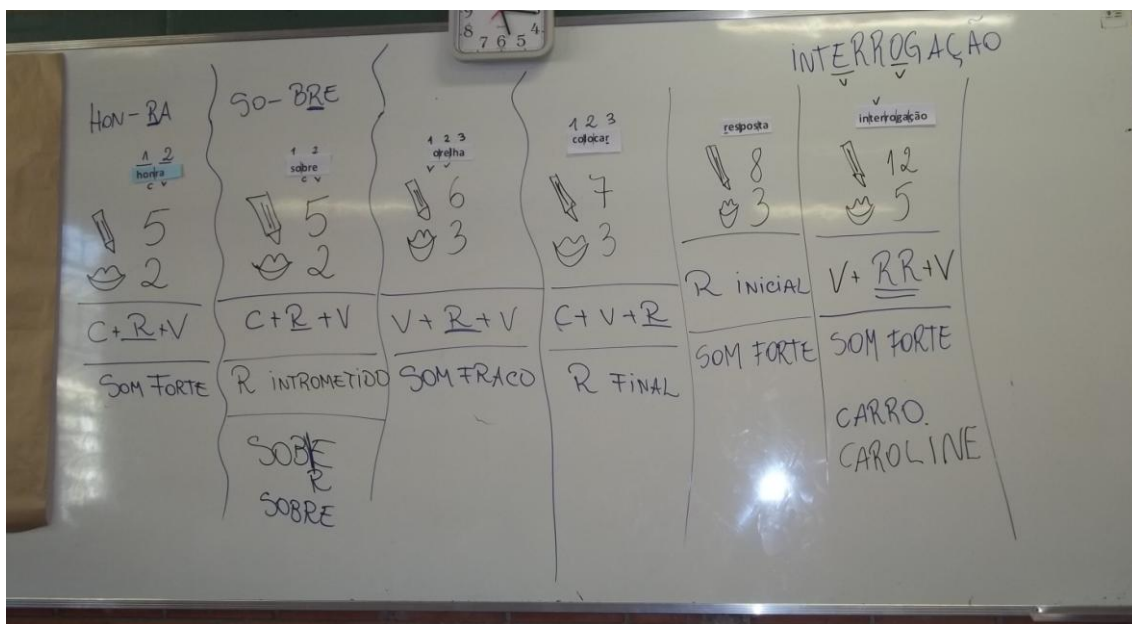 9
8 7 6 5 4
HON-RA
1 2
honra
C V
5
2
C+R+V
SOM FORTE
SO-BRE
1 2
sobre
C V
5
2
C+R+V
R INTROMETIDO
SOBE
R
SOBRE
1 2 3
orelha
V V
6
3
V+R+V
SOM FRACO
1 2 3
colocar
7
3
C+V+R
R FINAL
resposta
8
3
R INICIAL
SOM FORTE
INTERROGAÇÃO
V V
V
interrogação
12
5
V+RR+V
SOM FORTE
CARRO.
CAROLINE